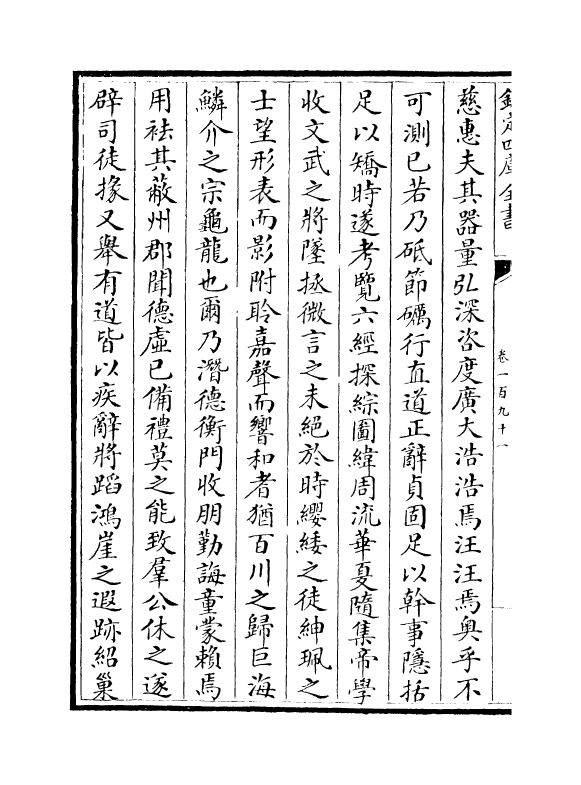 欽定四庫全書
卷一百九十一
慈惠夫其器量弘深咨度廣大浩浩焉汪汪焉奥乎不
可測已若乃砥節礪行直道正辭貞固足以幹事隱括
足以矯時遂考覽六經探綜圖緯周流華夏隨集帝學
收文武之將墜拯微言之未絕於時纓緌之徒紳珮之
士望形表而影附聆嘉聲而響和者猶百川之歸巨海
鱗介之宗龜龍也爾乃潛德衡門收朋勤誨童蒙賴焉
用祛其蔽州郡聞德虛已備禮莫之能致羣公休之遂
辟司徒掾又舉有道皆以疾辭將蹈鴻崖之遐跡紹巢